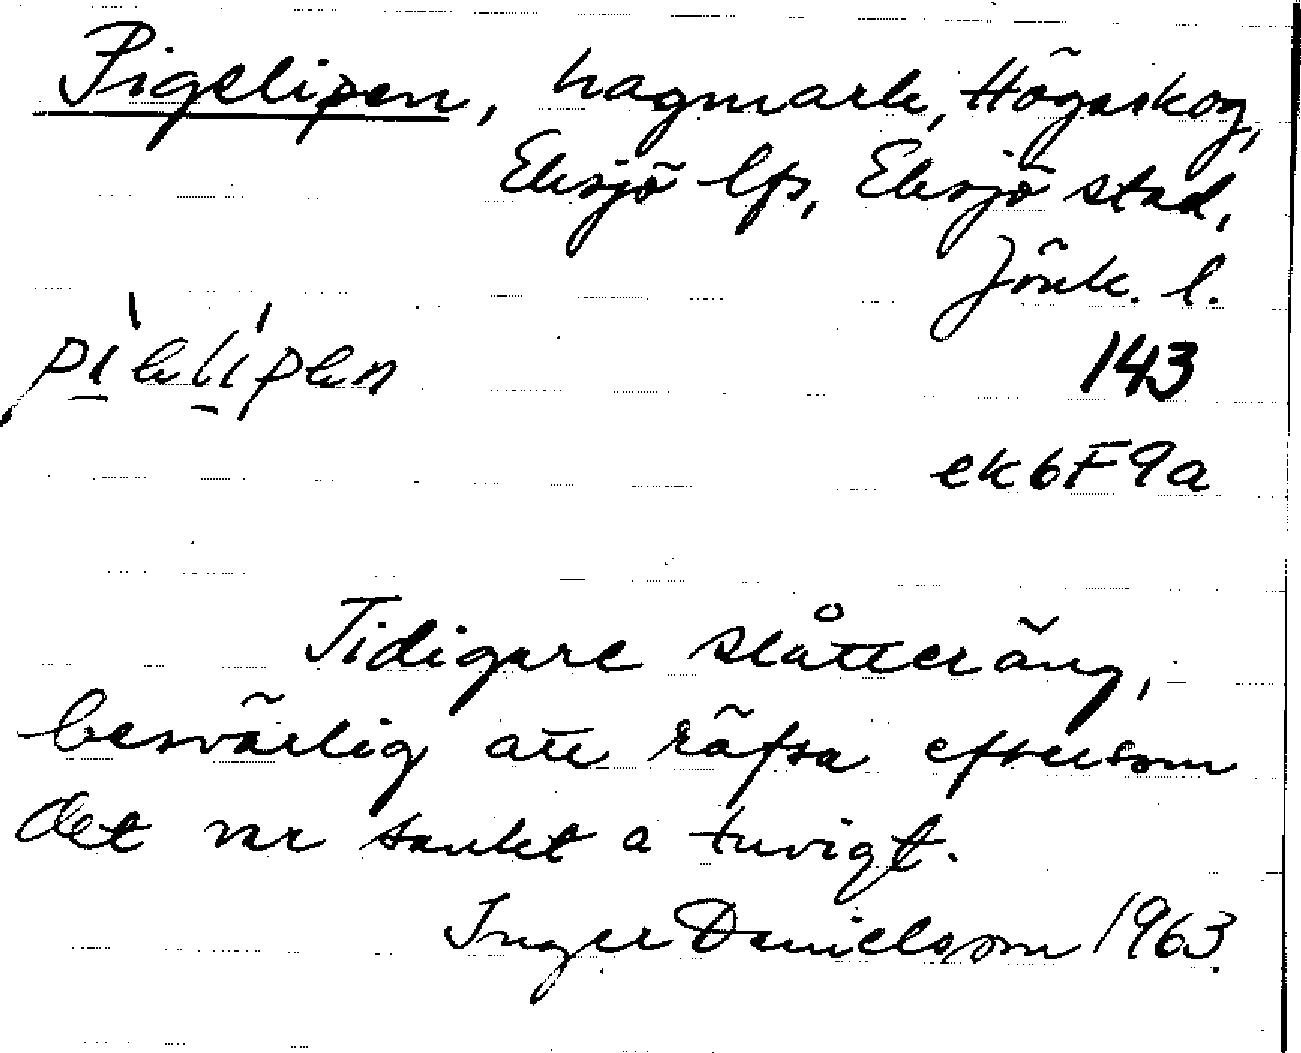 Pigelipen, hagmark, Högaskog,
Eksjö lfs, Eksjö stad,
Jönk. l.
143
ek6F9a
Tidigare slåtteräng,
besvärlig att räfsa eftersom
det var sankt o tuvigt.
Inger Danielsson 1963.